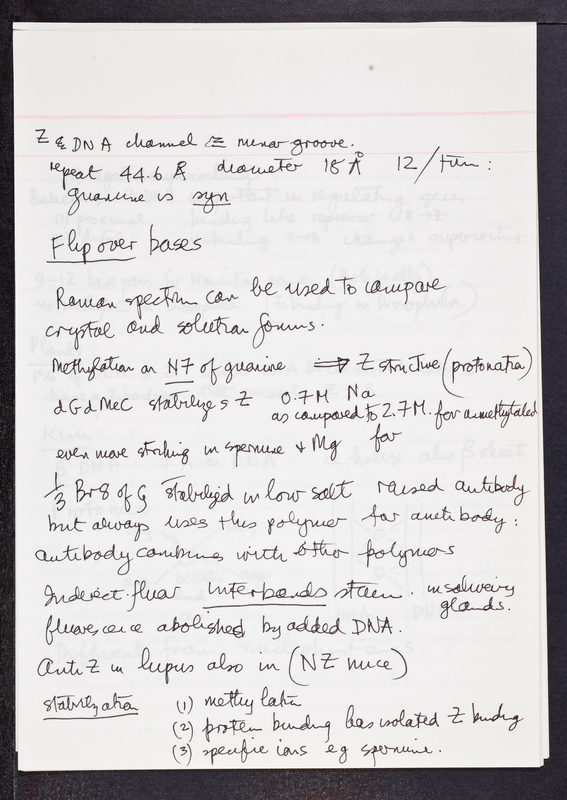 Z & DNA channel ≡ minor groove.
repeat 44.6 Å diameter 18 Å 12/turn:
guanine is syn
Flip over bases
Raman spectrum can be used to compare
crystal and solution forms.
Methylation on N7 of guanine ⇒ Z structure (protonation)
dGdMeC stabilizes Z 0.7M Na
as compared to 2.7M. for unmethylated
even more striking in spermine + Mg for
1/3 Br8 of G stabilized in low salt raised antibody
but always uses this polymer for antibody:
antibody combines with other polymers
Indirect fluor Interbands stain. in salivary
glands.
fluorescence abolished by added DNA.
Anti Z in lupus also in (NZ mice)
stabilization (1) methylation
(2) protein binding has isolated Z binding
(3) specific ions eg spermine.